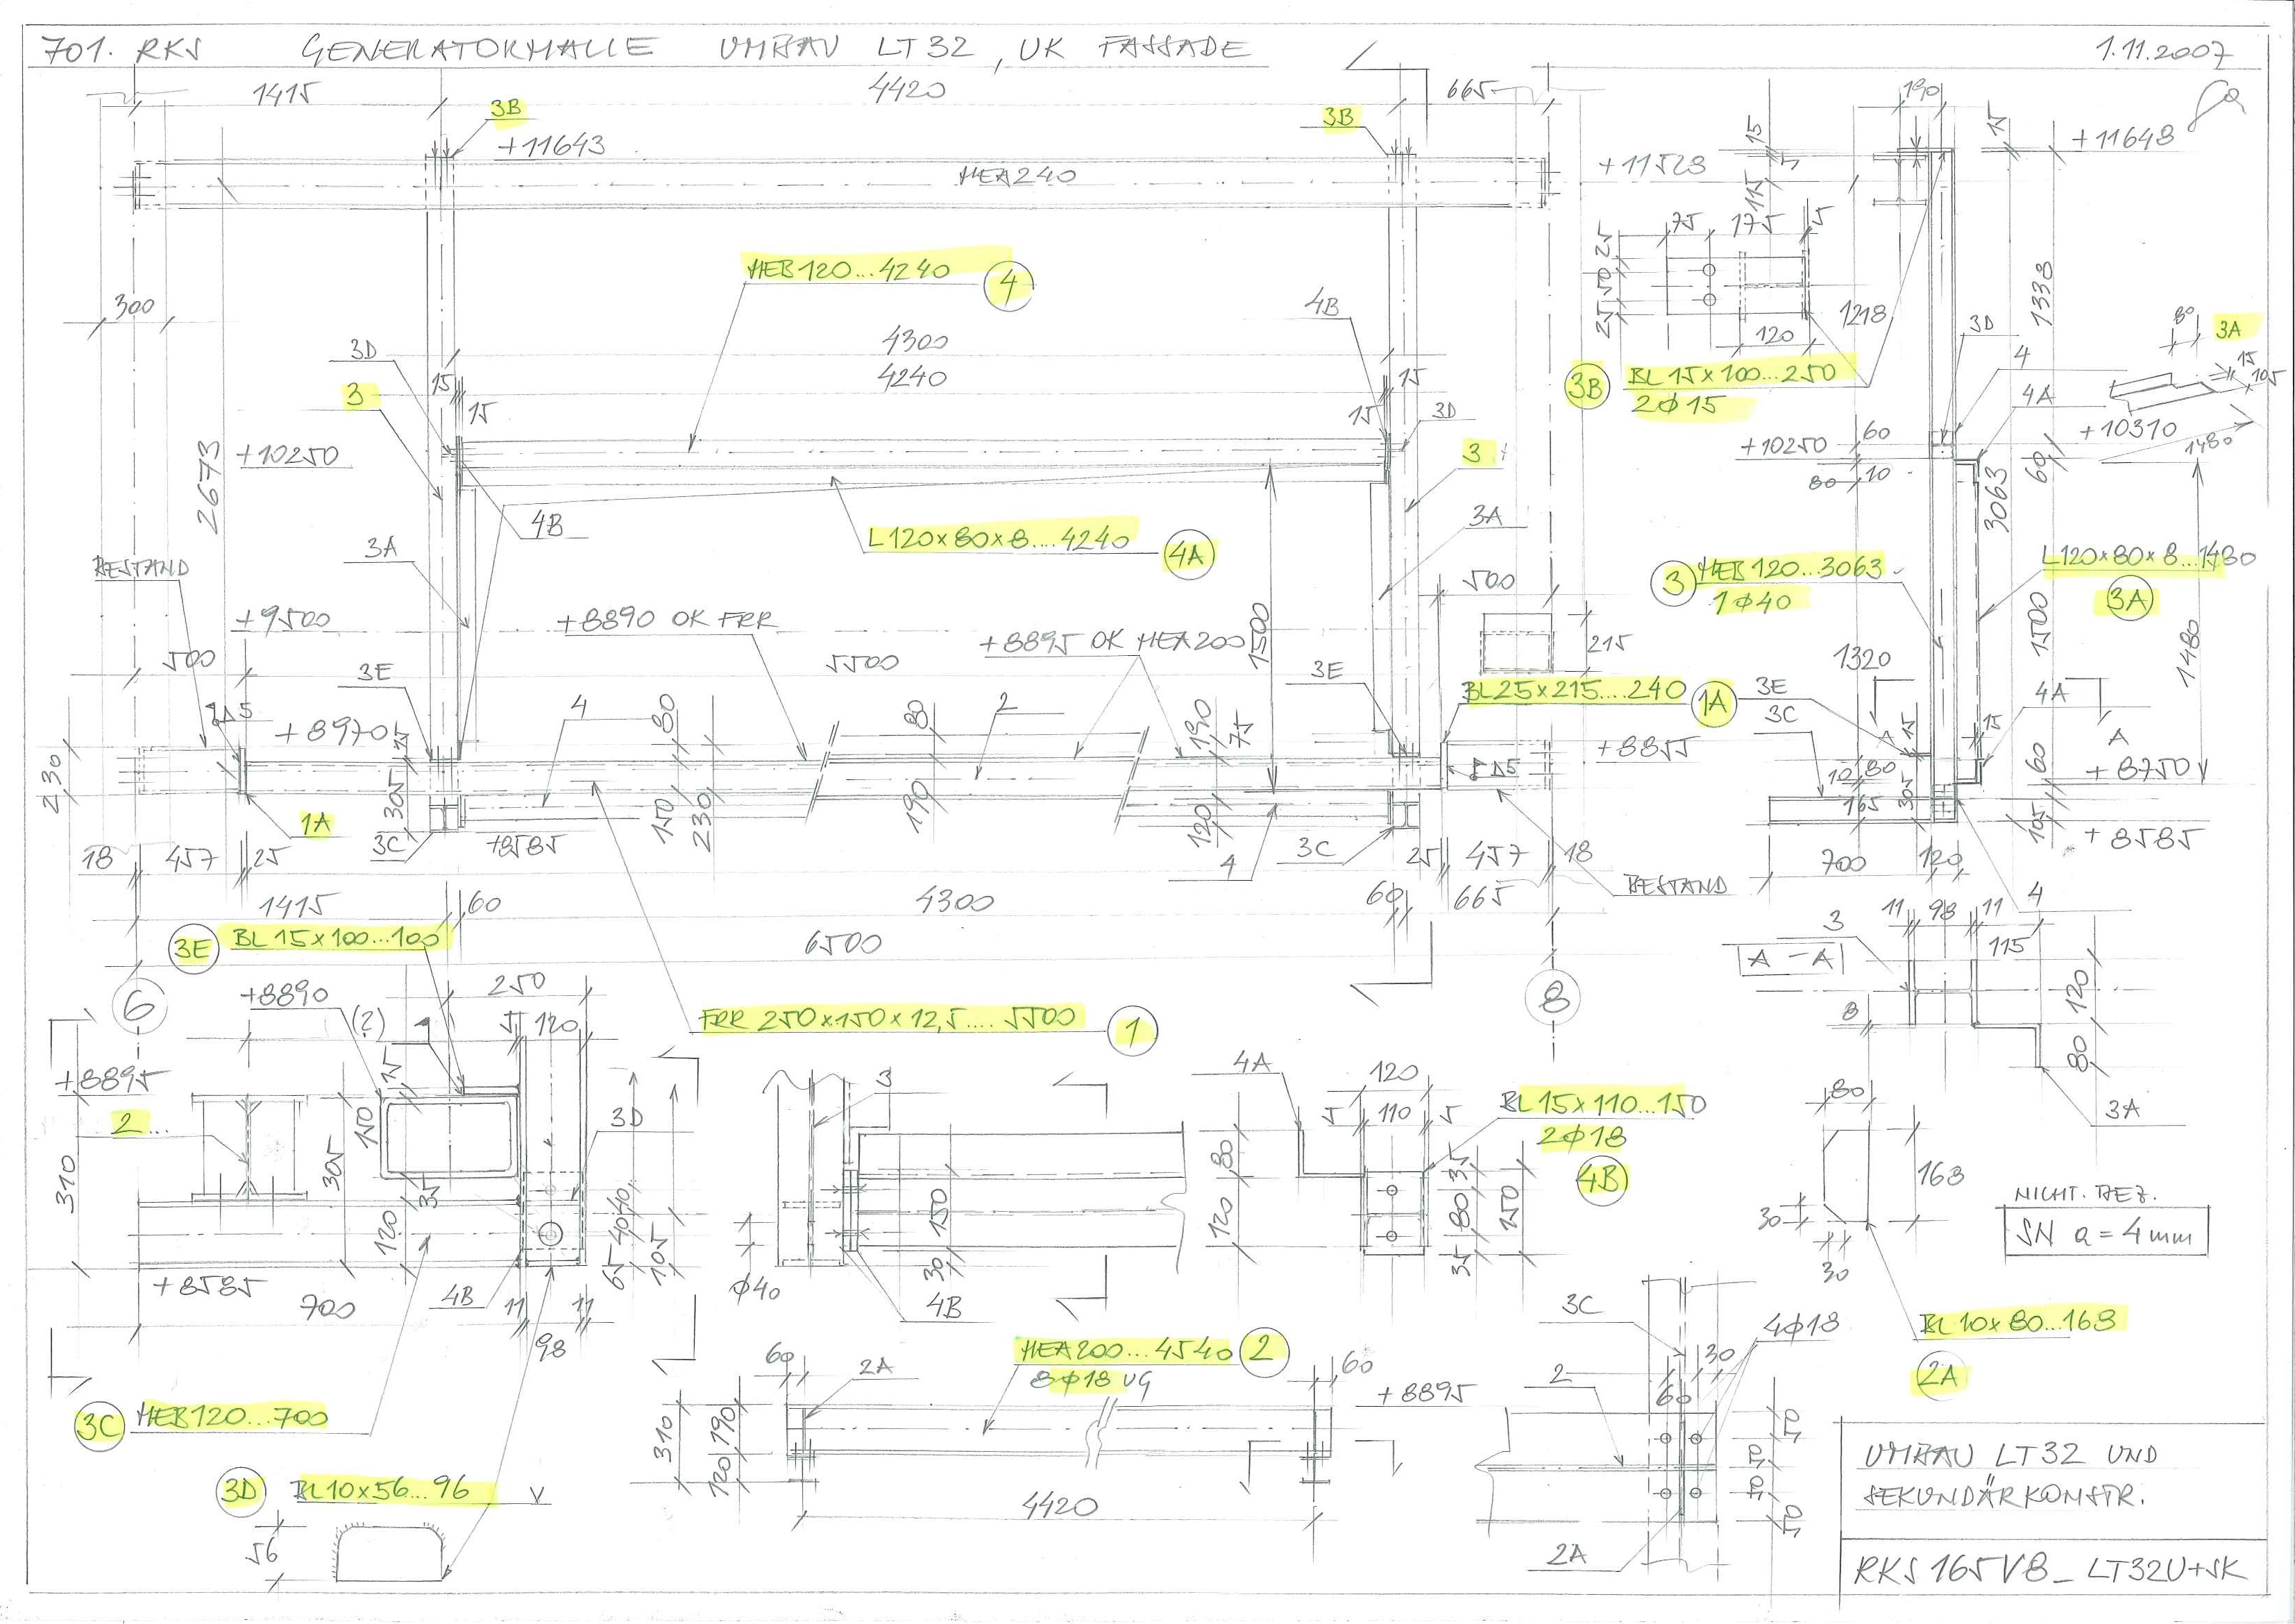 701. RKS GENERATORHALLE UMBAU LT 32, UK FASSADE 1.11.2007
1415 4420 665 190
3B 3B 15 15
+11643 +11528 +11648
HEA240
115
75 175 5
25 50 25
HEB120...4240 4
300
4B 1218 1338 80 3A
4300 120 3D 15
3D 4240 4 105
3 15 15 3B BL 15x100...250 4A
15 15 3D 2ϕ15
+10310
2673 +10250 3 +10250 60 1480
10 80 3063 60
4B L120x80x8....4240 4A 3A
3A
BESTAND 500 3 HEB120...3063 L120x80x8...1480
1ϕ40 3A
+9500 +8890 OK FRR +8895 OK HEA200 1500 215 1500
500 5500 1320 1480
3E 3E BL25x215....240 1A 3E 4A
3C
5 4 80 80 2 190 75 15 15
+8970 15 5 +8855 A
230 305 10 80 60 +8750
150 230 190 120 165 305 105
1A 3C +8585 4 3C +8585
18 457 25 25 457 18 700 120
BESTAND 4
1415 60 4300 60 665 11 98 11
3E BL 15x100...100 6500 3 115
A - A
6 +8890 250 8 120
(2) 5 120 FRR 250x150x12,5....5500 1 8
+8895 15 3 4A 120 80
2... 150 3D 5 110 5 BL15x110...150 80 3A
2ϕ18
310 305 35 80 35 4B 168 NICHT. BEZ.
120 40 40 150 120 80 150 30 SN a = 4mm
65 105 30 35 30
+8585 ϕ40
700 4B 11 11 4B 3C 4ϕ18 BL 10x80...168
98 60 HEA200...4540 2 60 30 2A
2A 8ϕ18 UG +8895 2 60
3C HEB120...700 310 190 50
120 50
3D BL10x56...96 4420 50 UMBAU LT32 UND
SEKUNDÄRKONSTR.
56 2A
RKS 165V8_LT32U+SK